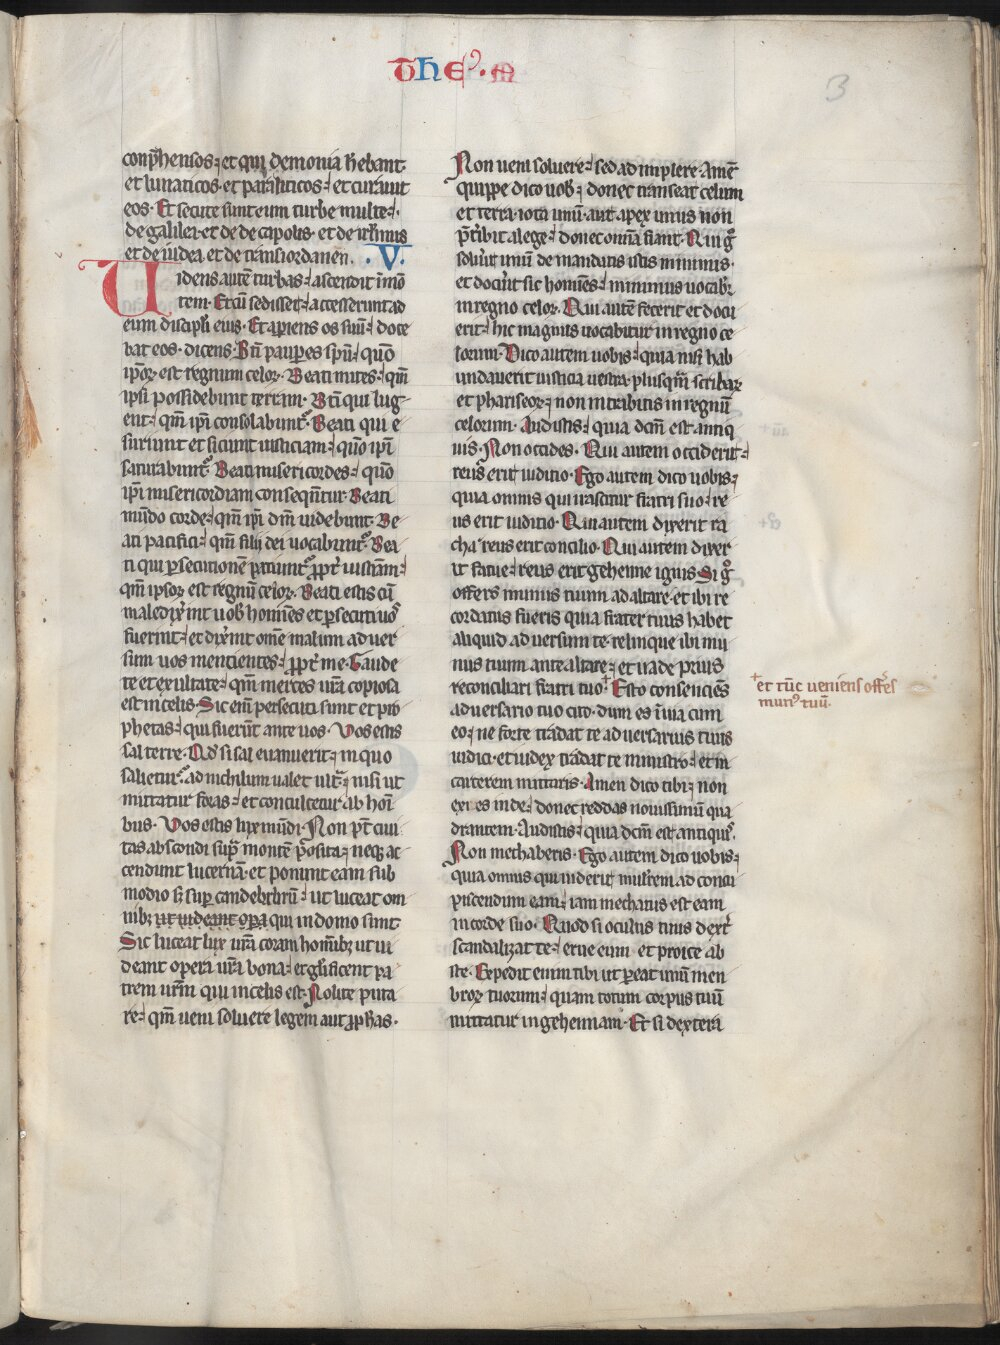 THEꝰ · M
3
conp̄hensos ; et qui demonia h̄ebant
et lunaticos · et paraliticos ; et curauit
eos · Et secute sunt eum turbe multe ;
de galilea · et de decapolis · et de ierl̄imis
et de iudea et de transiordanen̄ . · V ·
Uidens autē turbas ; ascendit ī mō
tem · Et cū sedisset ; accesserunt ad
eum discipl̄i eius · Et apiens os suū ; doce
bat eos · dicens · Bn̄ pauꝑes spū ; quō
ip̄oꝝ est regnum celoꝝ · Beati mites ; qm̄
ipsi possidebunt terram · Bt̄i qui lug
ent ; qm̄ ip̄i consolabunt᷑ · Beati qui e
suriunt et siciunt iusticiam ; quō ip̄i
saturabunt᷑ · Beati misericordes ; quō
ip̄i misericordiam conseqn̄tur · Beati
mūdo corde ; qm̄ ip̄i dm̄ uidebunt · Be
ati pacifici ; qm̄ filij dei uocabunt᷑ · Bea
ti qui ꝑsecutionē patiunt᷑ ꝓpt̄ iustiam ;
qm̄ ipsoꝝ est regnū celoꝝ · Beati estis cū
maledix̄int uob̄ homīes et ꝑsecuti uos̄
fuerint ; et dix̄int om̄e malum aduer
sum uos mentientes ; ꝓpt̄ me · Gaude
te et exultate ; qm̄ merces ur̄a copiosa
est in celis · Sic enī ꝑsecuti sunt et pro
phetas ; qui fuerūt ante uos · Vos estis
sal terre · Qd̄ si sal euanuerit ; in quo
salietur᷑ · ad nichilum ualet ult᷑ ; nisi ut
mittatur foras ; et conculcetur ab hoi
bus · Vos estis lux mūdi · Non pōt ciui
tas abscondi sup̄ montē pōsita ; neqꝫ ac
cendunt lucernā · et ponunt eam sub
modio sꝫ sup candelabrū ; ut luceat om
nibꝫ ut uideant opa qui in domo sunt
Sic luceat lux ur̄a coram homībꝫ ut ui
deant opera ur̄a bona ; et gl̄ificent pa
trem ur̄m qui in celis est · Nolite puta
re ; qm̄ ueni soluere legem aut ꝓph̄as ·
Non ueni soluere ; sed adimplere · Amē
quippe dico uob̄ ; donec transeat celum
et terra · iota unū · aut apex unus non
p̄t̄ibit a lege ; donec omīa fiant · Qui g̊
solūit unū de mandatis istis minimis ·
et docūit sic homīes ; minimus uocabit᷑
in regno celoꝝ · Qui autē fecerit et docu
erit ; hic magnus uocabitur in regno ce
lorum · Dico autem uobis ; quia nisi hab
undauerit iusticia uestra · plusqm̄ scribaꝝ
et phariseoꝝ ; non intrabitis in regnū
celorum · Audistis ; quia dcm̄ est antiq
uis · Non occides · Qui autem occiderit ;
reus erit iuditio · Ego autem dico uobis ;
quia omnis qui irascitur fratri suo ; re
us erit iuditio · Qui autem dixerit ra
cha ; reus erit concilio · Qui autem dixer
it fatue ; reus erit gehenne ignis · Si g̊
offers munus tuum ad altare · et ibi re
cordatus fueris quia frater tuus habet
aliquid aduersum te · relinque ibi mu
nus tuum ante altare ; et uade prius
reconciliari fratri tuo⁺ · Esto consenciēs
aduersario tuo cito · dum es ī uia cum
eo ; ne forte tradat te aduersarius tuus
iudici · et iudex tradat te ministro ; et in
carcerem mittaris · Amen dico tibi ; non
exies inde ; donec reddas nouissimū qua
drantem · Audistis ; quia dcm̄ est antiquis̄ ·
Non mechaberis · Ego autem dico uobis ;
quia omnis qui uiderit mulīrem ad concu
piscendum eam ; iam mechatus est eam
in corde suo · Quod si oculus tuus dext̄
scandalizat te ; erue eum et proice ab
s te · Expedit enim tibi ut ꝑeat unū mem
broꝝ tuorum ; quam totum corpus tuū
mittatur in gehennam · Et si dextera
⁺et tūc ueniens offēs
munꝰ tuū ·